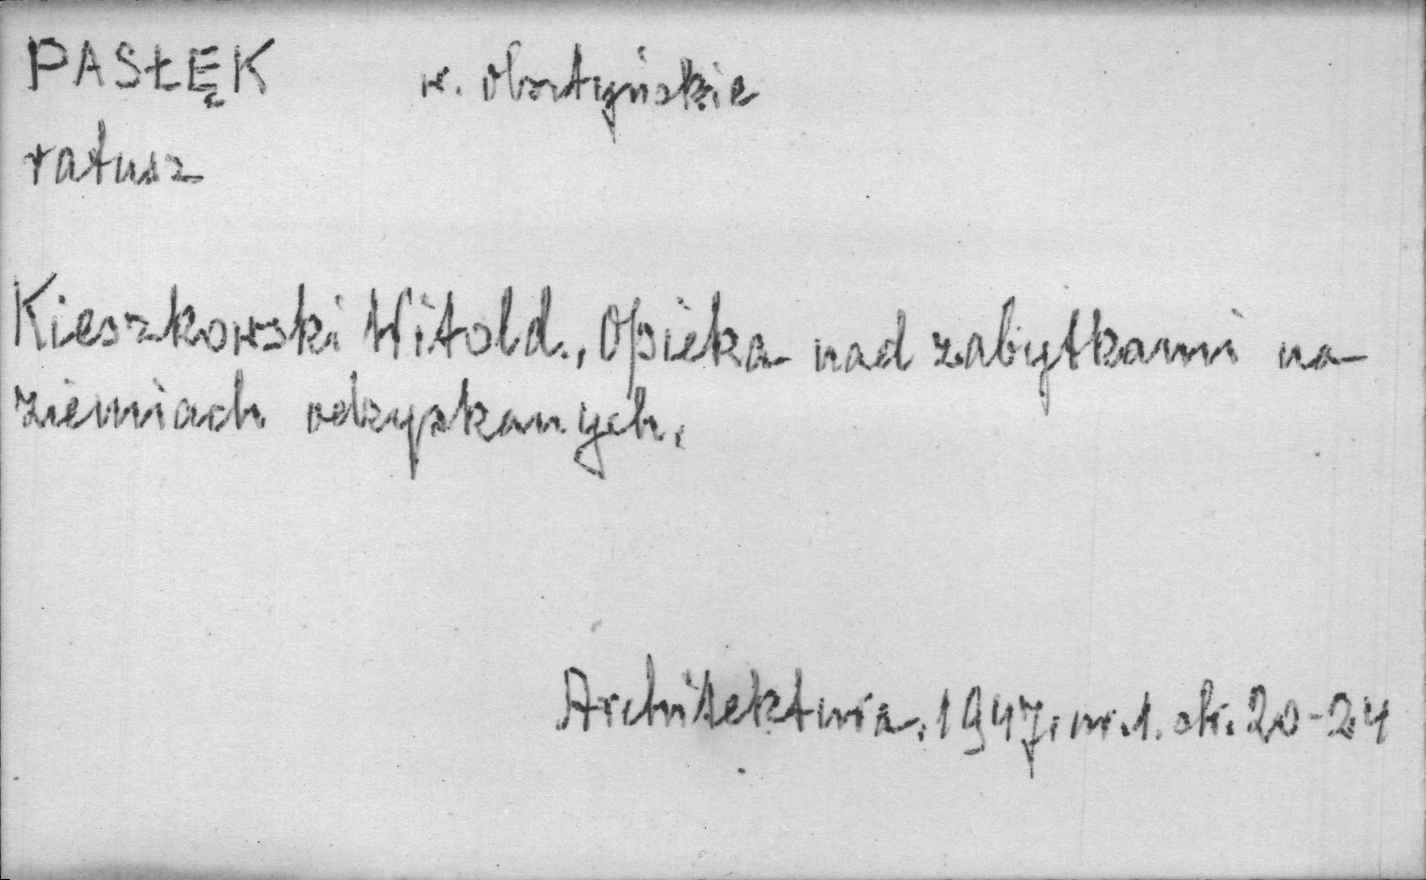 PASŁĘK w. olsztyńskie
ratusz
Kieszkowski Witold., Opieka nad zabytkami na
ziemiach odzyskanych.
Architektura. 1947. nr. 1. str. 20-24